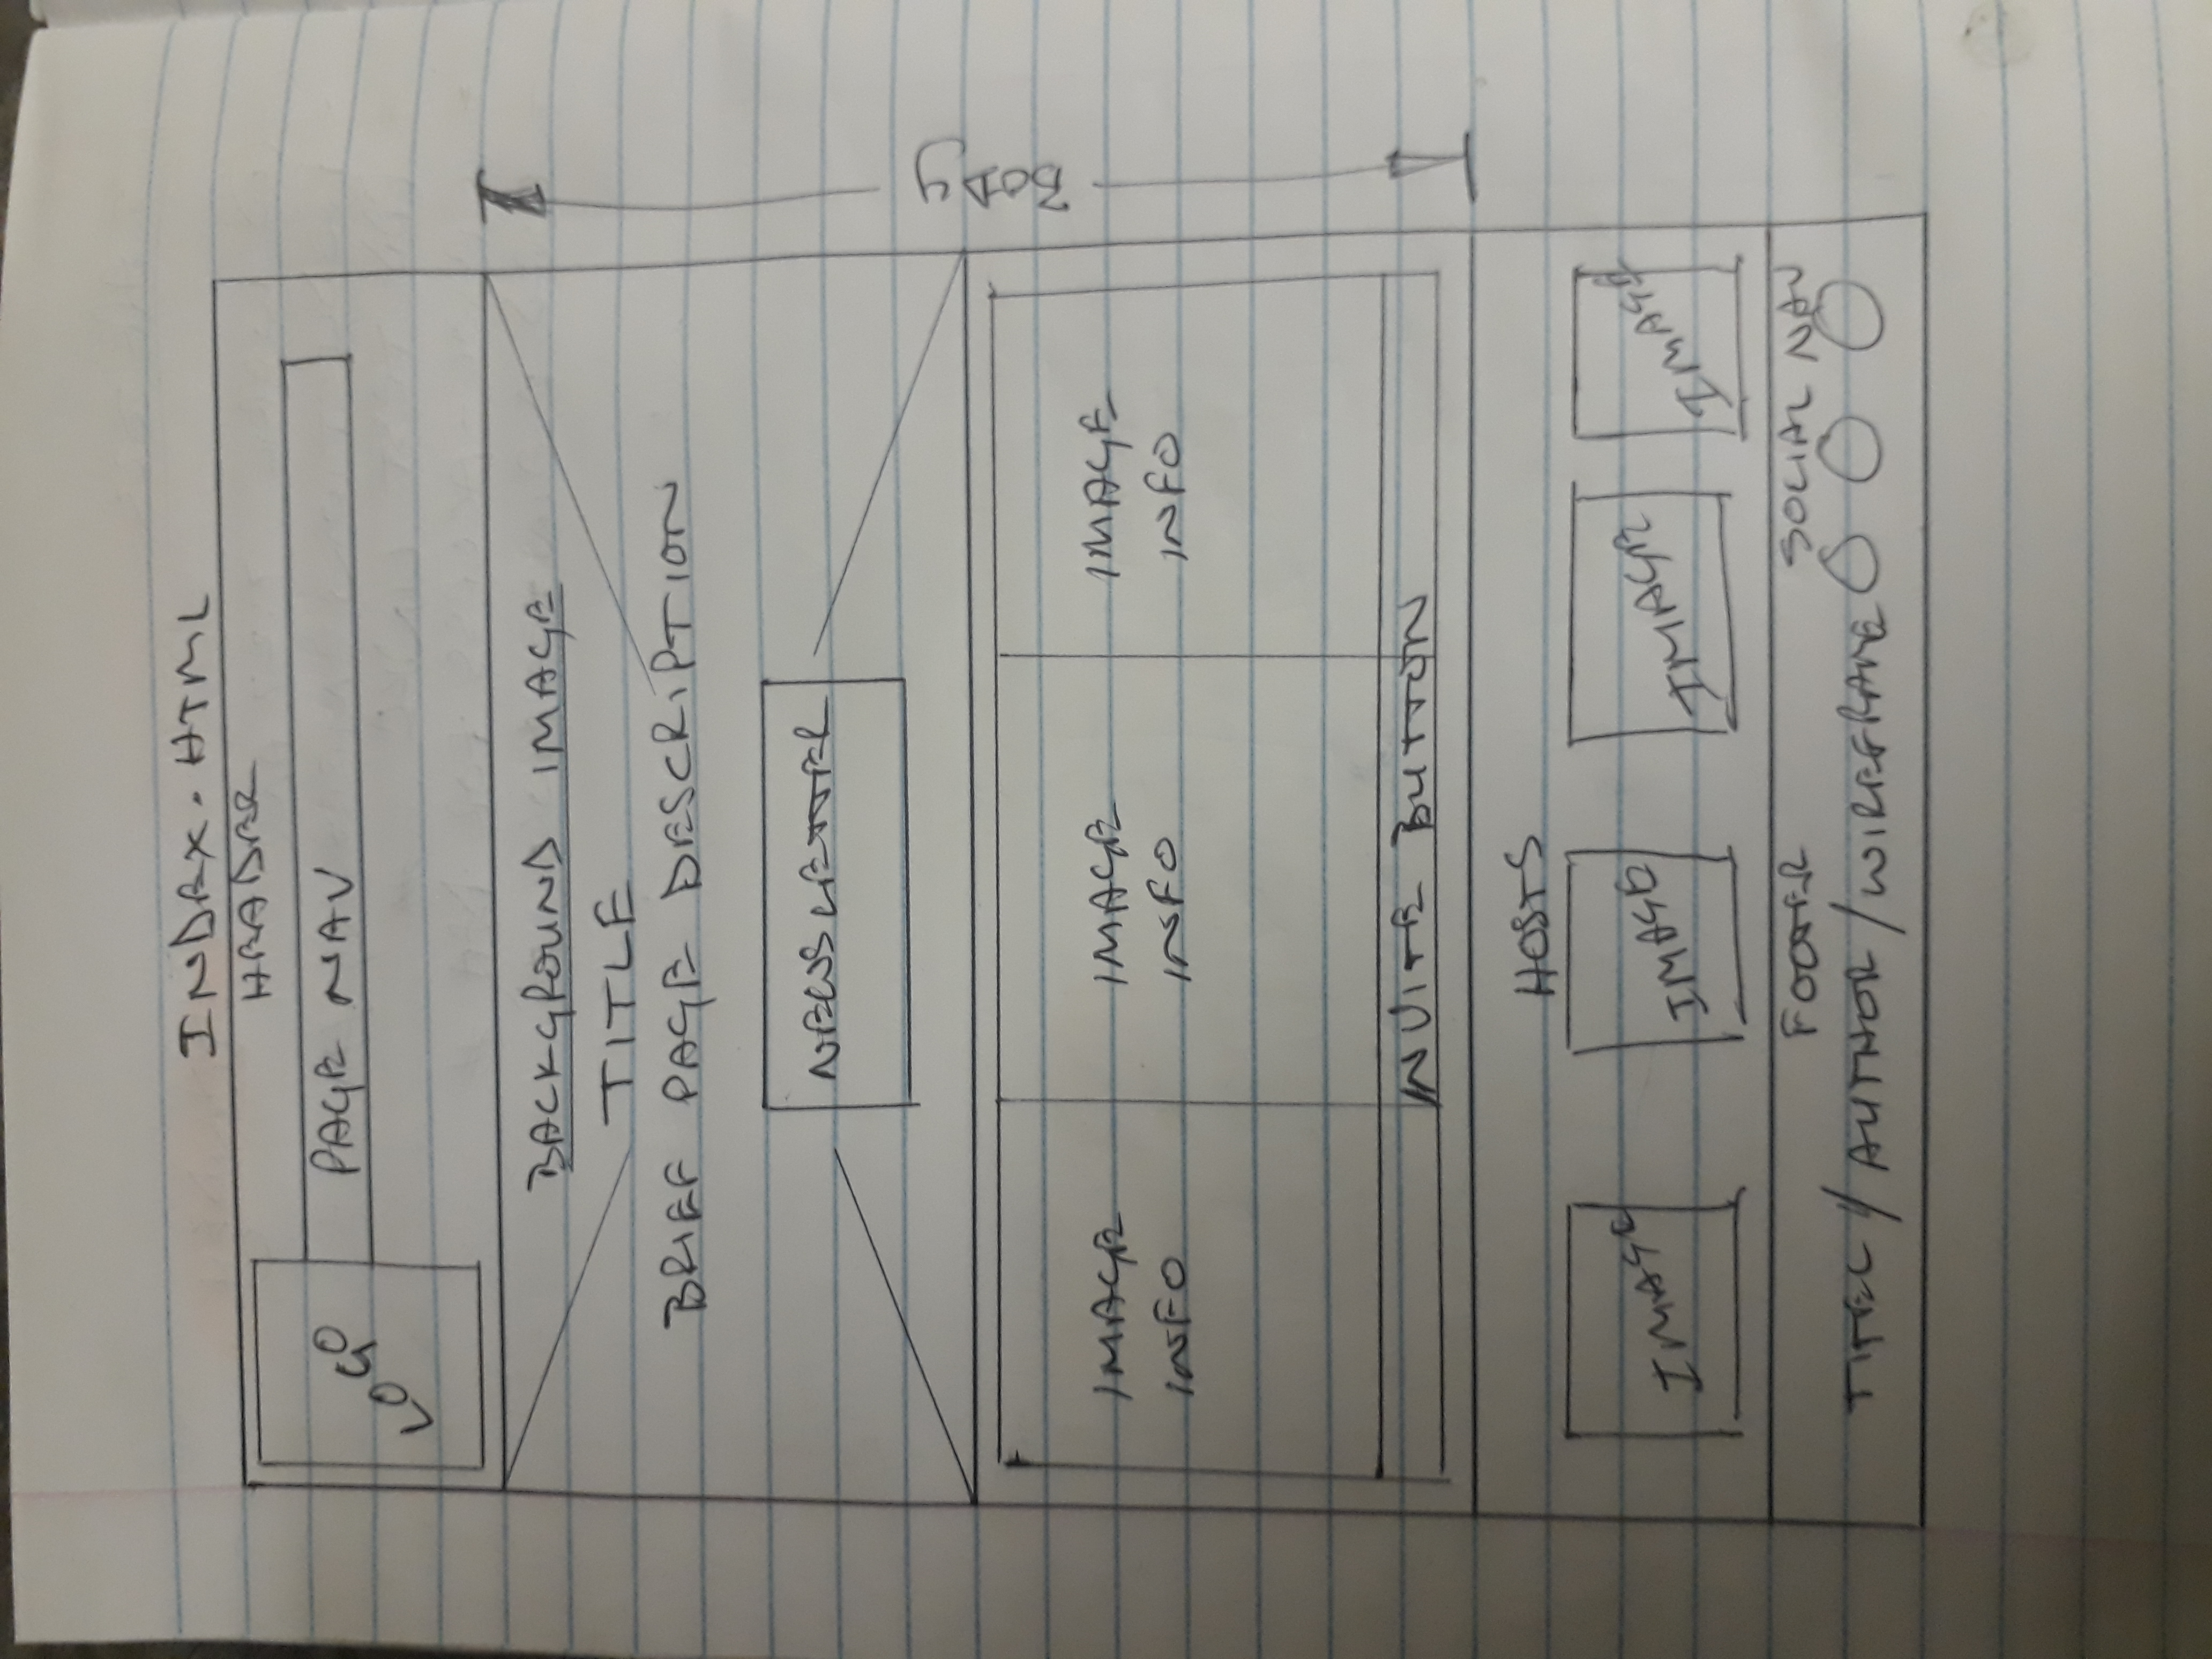 INDEX.HTML
HEADER
LOGO
PAGE NAV
BACKGROUND IMAGE
TITLE
BRIEF PAGE DESCRIPTION
NEWSLETTER
BODY
IMAGE IMAGE IMAGE
INFO INFO INFO
INVITE BUTTON
HOSTS
IMAGE IMAGE IMAGE IMAGE
FOOTER SOCIAL NAV
TITEL / AUTHOR / WIREFRAME